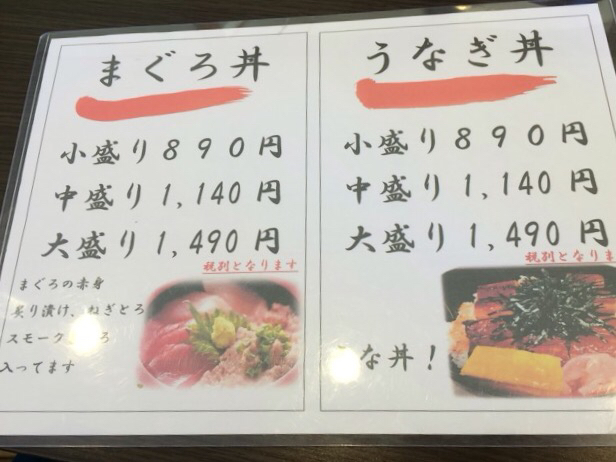 まぐろ丼
小盛り890円
中盛り1,140円
大盛り1,490円
税別となります
まぐろの赤身
炙り漬け、ねぎとろ
スモーク
入ってます
うなぎ丼
小盛り890円
中盛り1,140円
大盛り1,490円
税別となります
な丼!